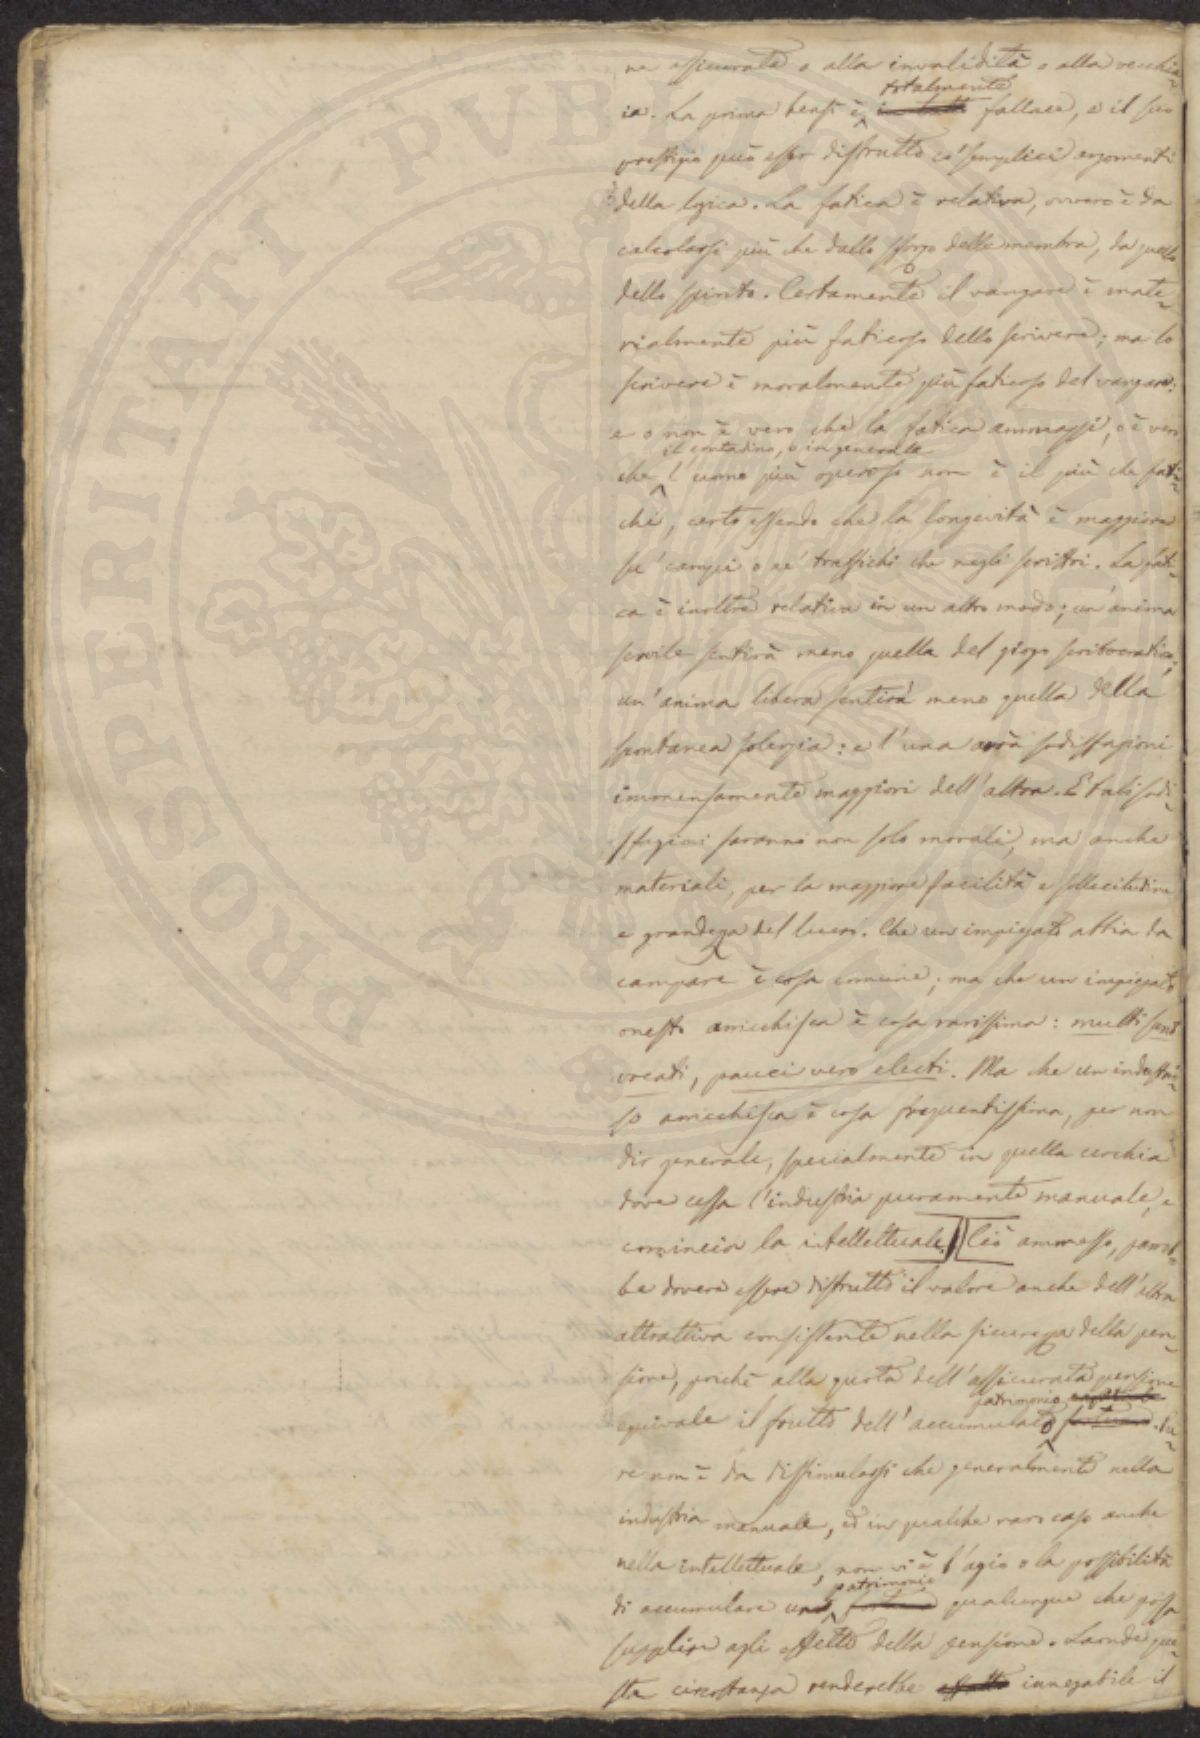 ne assicurata o alla invalidità o alla vecchia-
ia. La prima bensì è totalmente fallace, e il suo
prestigio può esser distrutto co' semplici argomenti
della logica. La fatica è relativa, ovvero è da
calcolarsi più che dallo sforzo delle membra, da quello
dello spirito. Certamente il vangare è mate-
rialmente più faticoso dello scrivere; ma lo
scrivere è moralmente più faticoso del vangare:
e o non è vero che la fatica ammazzi, o è vero
che il contadino, o in generale l'uomo più operoso non è il più che fati-
chi, certo essendo che la longevità è maggiore
ne' campi o ne' traffichi che negli scrittoi. La fati-
ca è inoltre relativa in un altro modo; un'anima
servile sentirà meno quella del giogo scribocratico;
un'anima libera sentirà meno quella della
spontanea solerzia: e l'una avrà sodisfazioni
immensamente maggiori dell'altra. E tali sodi-
sfazioni saranno non solo morali, ma anche
materiali, per la maggiore facilità e sollecitudine
e grandezza del lucro. Che un impiegato abbia da
campare è cosa comune; ma che un impiegato
onesto arricchisca è cosa rarissima: multi sunt
vocati, pauci vero electi. Ma che un industrio-
so arricchisca è cosa frequentissima, per non
dir generale, specialmente in quella cerchia
dove cessa l'industria puramente manuale, e
comincia la intellettuale. Ciò ammesso, parreb-
be dovere essere distrutto il valore anche dell'altra
attrattiva consistente nella sicurezza della pen-
sione, poichè alla quota dell'assicurata pensione
equivale il frutto dell'accumulato patrimonio. Pu-
re non è da dissimularsi che generalmente nella
industria manuale, ed in qualche raro caso anche
nella intellettuale, non vi è l'agio o la possibilità
di accumulare un patrimonio qualunque che possa
supplire agli effetti della pensione. Laonde que-
sta circostanza renderebbe innegabile il
PROSPERITATI PVBLICAE